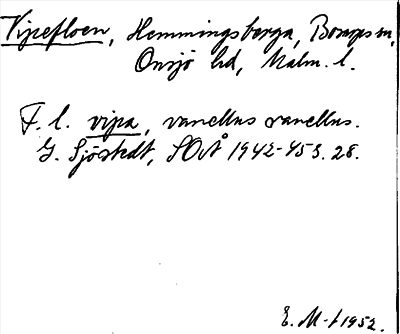 Vipefloen, Hemmingsberga, Bosarps sn,
Onsjö hd, Malm. l.
F. l. vipa, vanellus vanellus.
G. Sjöstedt, SOÅ 1942-45 s. 28.
E. M-t 1952.